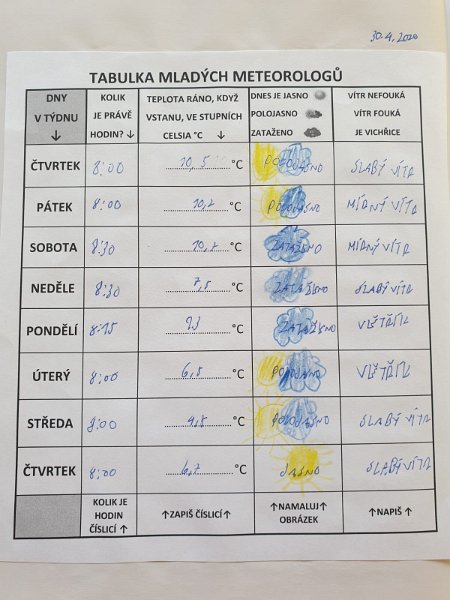 30.4.2020
TABULKA MLADÝCH METEOROLOGŮ
DNY
V TÝDNU
↓
KOLIK
JE PRÁVĚ
HODIN? ↓
TEPLOTA RÁNO, KDYŽ
VSTANU, VE STUPNÍCH
CELSIA °C ↓
DNES JE JASNO
POLOJASNO
ZATAŽENO
VÍTR NEFOUKÁ
VÍTR FOUKÁ
JE VICHŘICE
ČTVRTEK 8:00 10,5 °C POLOJASNO SLABÝ VÍTR
PÁTEK 8:00 10,2 °C POLOJASNO MÍRNÝ VÍTR
SOBOTA 8:30 10,2 °C ZATAŽENO MÍRNÝ VÍTR
NEDĚLE 8:30 7,5 °C ZATAŽENO SLABÝ VÍTR
PONDĚLÍ 8:15 °C ZATAŽENO VĚTŘÍK
ÚTERÝ 8:00 6,8 °C POLOJASNO VĚTŘÍK
STŘEDA 8:00 4,8 °C POLOJASNO SLABÝ VÍTR
ČTVRTEK 8:00 6,7 °C JASNO SLABÝ VÍTR
KOLIK JE
HODIN
ČÍSLICÍ ↑
↑ZAPIŠ ČÍSLICÍ↑
↑NAMALUJ↑
OBRÁZEK
↑NAPIŠ↑